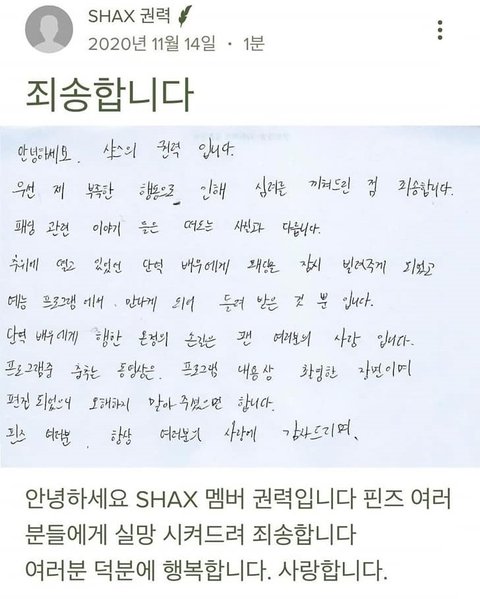 SHAX 권력
2020년 11월 14일 · 1분
죄송합니다
안녕하세요. 샥스의 권력 입니다.
우선 제 부족한 행동으로 인해 심려를 끼쳐드린 점 죄송합니다.
패딩 관련 이야기 들은 떠도는 사실과 다릅니다.
추위에 떨고 있었던 단역 배우에게 잠시 빌려주게 되었고
예능 프로그램에서 만나게 되어 돌려 받은 것 뿐 입니다.
단역 배우에게 행한 온정의 손길은 팬 여러분의 사랑 입니다.
프로그램중 춤추는 동영상은 프로그램 내용상 촬영한 장면이며
편집 되었으니 오해하지 말아 주셨으면 합니다.
핀즈 여러분, 항상 여러분의 사랑에 감사드리며,
안녕하세요 SHAX 멤버 권력입니다 핀즈 여러
분들에게 실망 시켜드려 죄송합니다
여러분 덕분에 행복합니다. 사랑합니다.